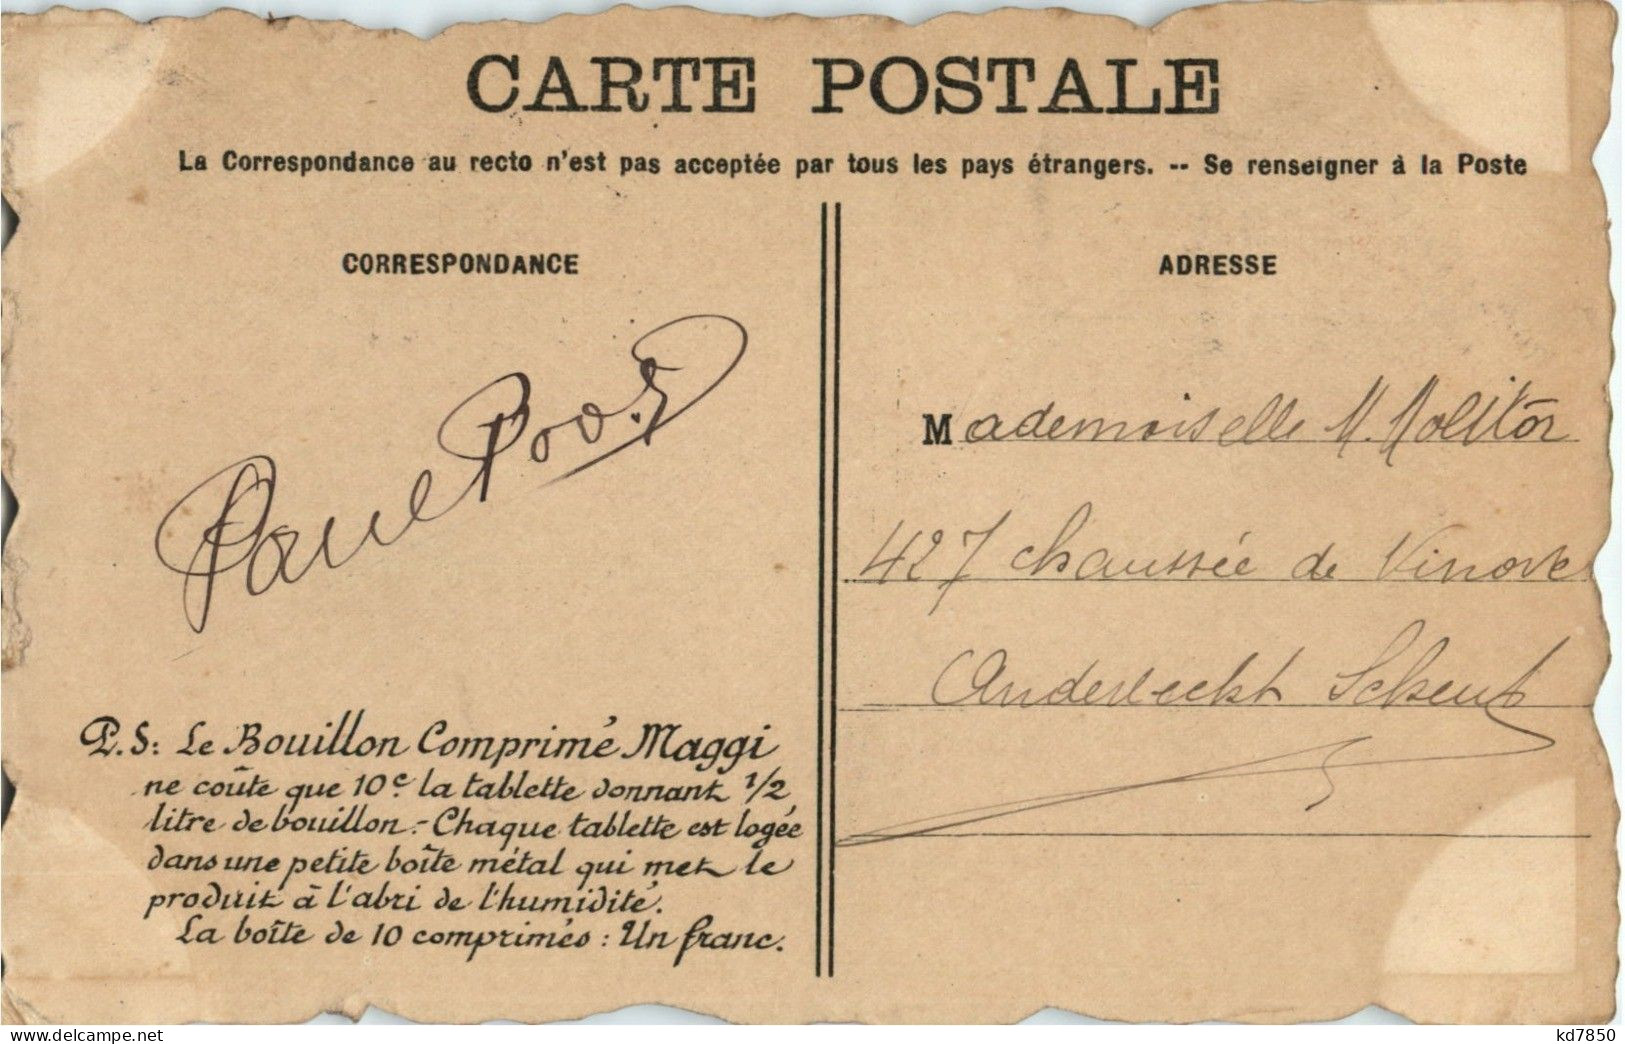 CARTE POSTALE
La Correspondance au recto n'est pas acceptée par tous les pays étrangers. -- Se renseigner à la Poste
CORRESPONDANCE
Paul
P.S: Le Bouillon Comprimé Maggi
ne coûte que 10c la tablette donnant 1/2
litre de bouillon.- Chaque tablette est logée
dans une petite boîte métal qui met le
produit à l'abri de l'humidité.
La boîte de 10 comprimés : Un franc.
ADRESSE
Mademoiselle M. Molitor
427 chaussée de Ninove
Anderlecht Scheut
delcampe.net
kd7850